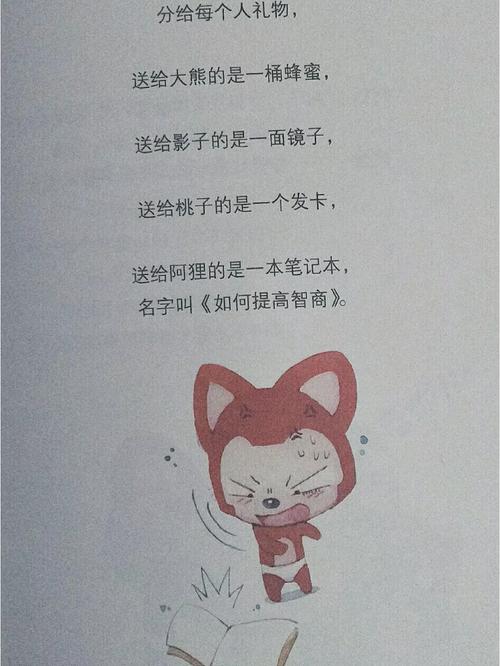 分给每个人礼物，
送给大熊的是一桶蜂蜜，
送给影子的是一面镜子，
送给桃子的是一个发卡，
送给阿狸的是一本笔记本，
名字叫《如何提高智商》。